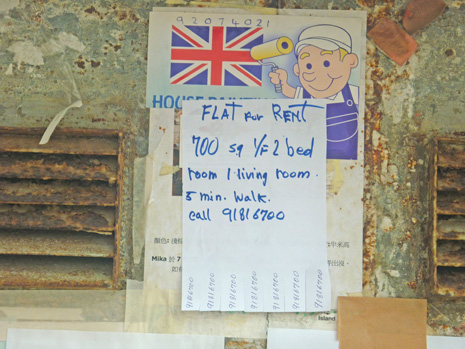 92074021
HOUSE
FLAT FOR RENT
700 sq 1/F 2 bed
room 1 living room.
5 min. walk.
call 91816700
Mika
91816700
91816700
91816700
91816700
91816700
91816700
91816700
Island